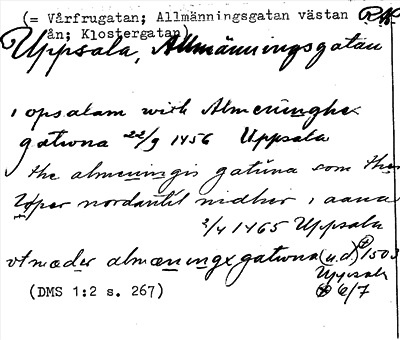 (= Vårfrugatan; Allmänningsgatan västan
ån; Klostergatan)
Uppsala, Allmänningsgatan
i opsalam widh Almeninghe
gatwna 22/9 1456 Uppsala
the almeningis gatuna som then
löper nordantil nidher i aana
2/4 1465 Uppsala
vt mæder almæninge gatwna (u.d.) 1503
Uppsala
6/7
(DMS 1:2 s. 267)